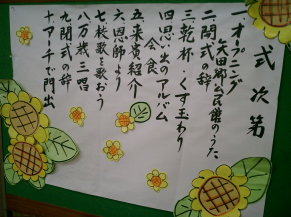 式次第
一、オープニング
矢田郷公民館のうた
二、開式の辞
三、乾杯・くす玉わり
四、思い出のアルバム
会食
五、来賓紹介
六、恩師より
七、校歌を歌おう
八、万歳三唱
九、閉式の辞
十、アーチで門出